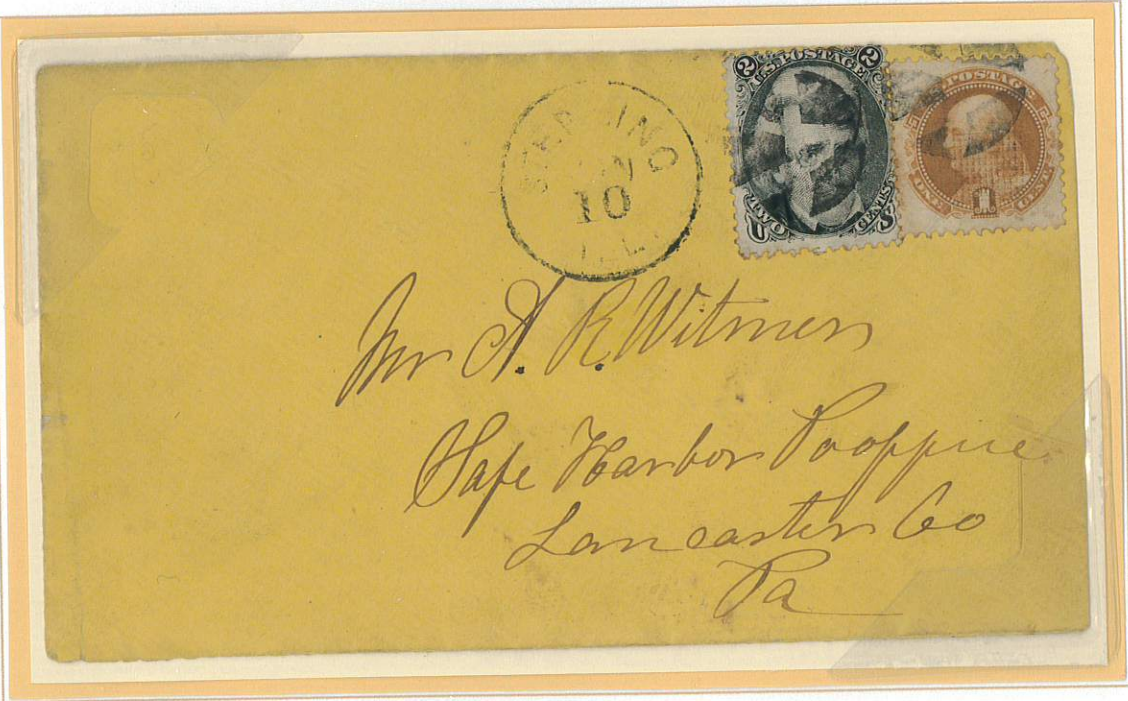 STERLING
10
ILL.
2 U.S. POSTAGE 2
U TWO CENTS S
POSTAGE
ONE 1 CENT
Mr A. R. Witmer
Safe Harbor Pooffice
Lancaster Co
Pa